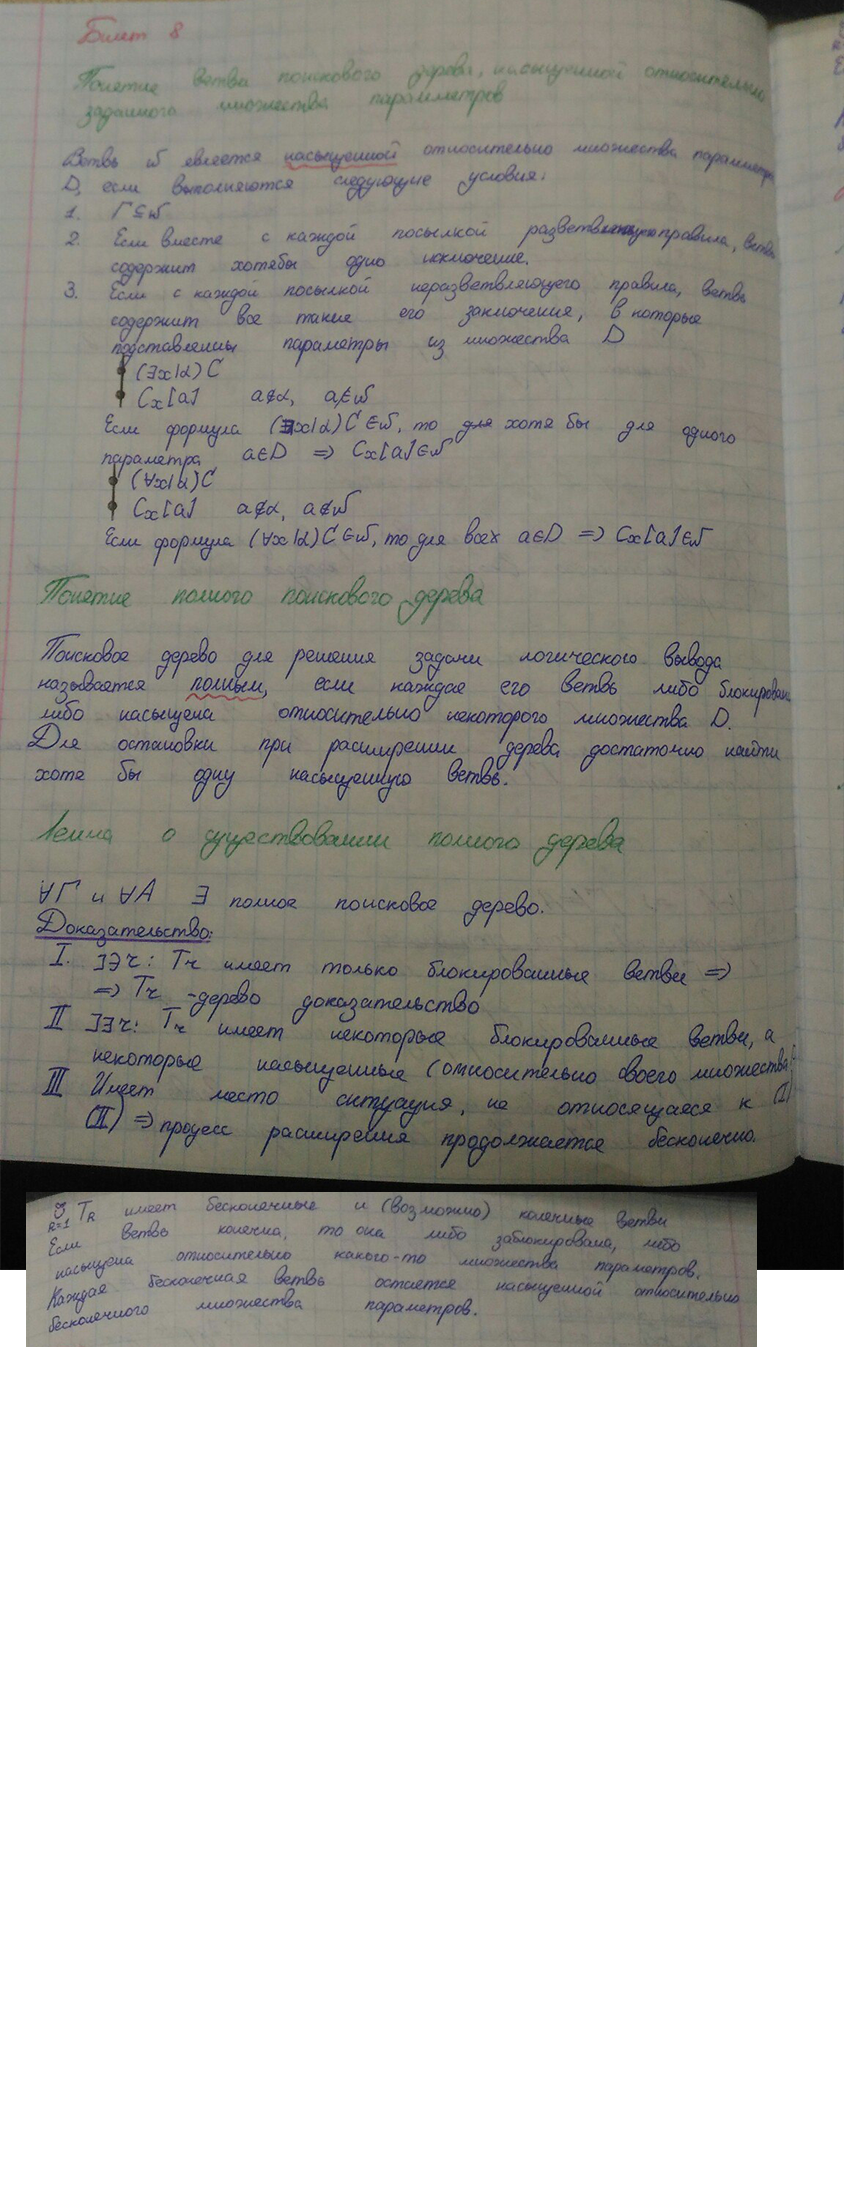 Билет 8
Понятие ветви поискового дерева, насыщенной относительно
заданного множества параметров
Ветвь ω является насыщенной относительно множества параметров
D, если выполняются следующие условия:
1. Γ ⊆ ω
2. Если вместе с каждой посылкой правила, ветвь
содержит хотябы одно заключение.
3. Если с каждой посылкой неразветвляющего правила, ветвь
содержит все такие его заключения, в которые
подставленны параметры из множества D
(∃x|α) C
Cx[a] a∉α, a∉ω
Если формула (∃x|α) C ∈ω, то для хотя бы для одного
параметра a∈D => Cx[a]∈ω
(∀x|α) C
Cx[a] a∉α, a∉ω
Если формула (∀x|α) C ∈ω, то для всех a∈D => Cx[a]∈ω
Понятие полного поискового дерева
Поисковое дерево для решения задачи логического вывода
называется полным, если каждая его ветвь либо блокирована
либо насыщена относительно некоторого множества D.
Для остановки при расширении дерева достаточно найти
хотя бы одну насыщенную ветвь.
Лемма о существовании полного дерева
∀Γ и ∀A ∃ полное поисковое дерево.
Доказательство:
I. ]∃r: Tr имеет только блокированные ветви =>
=> Tr - дерево доказательство
II ]∃r: Tr имеет некоторые блокированные ветви, а
некоторые насыщенные (относительно своего множества)
III Имеет место ситуация, не относящаяся к (I)
(II) => процесс расширения продолжается бесконечно.
R=1 TR имеет бесконечные и (возможно) конечные ветви
Если ветвь конечна, то она либо заблокирована, либо
насыщена относительно какого-то множества параметров.
Каждая бесконечная ветвь остается насыщенной относительно
бесконечного множества параметров.